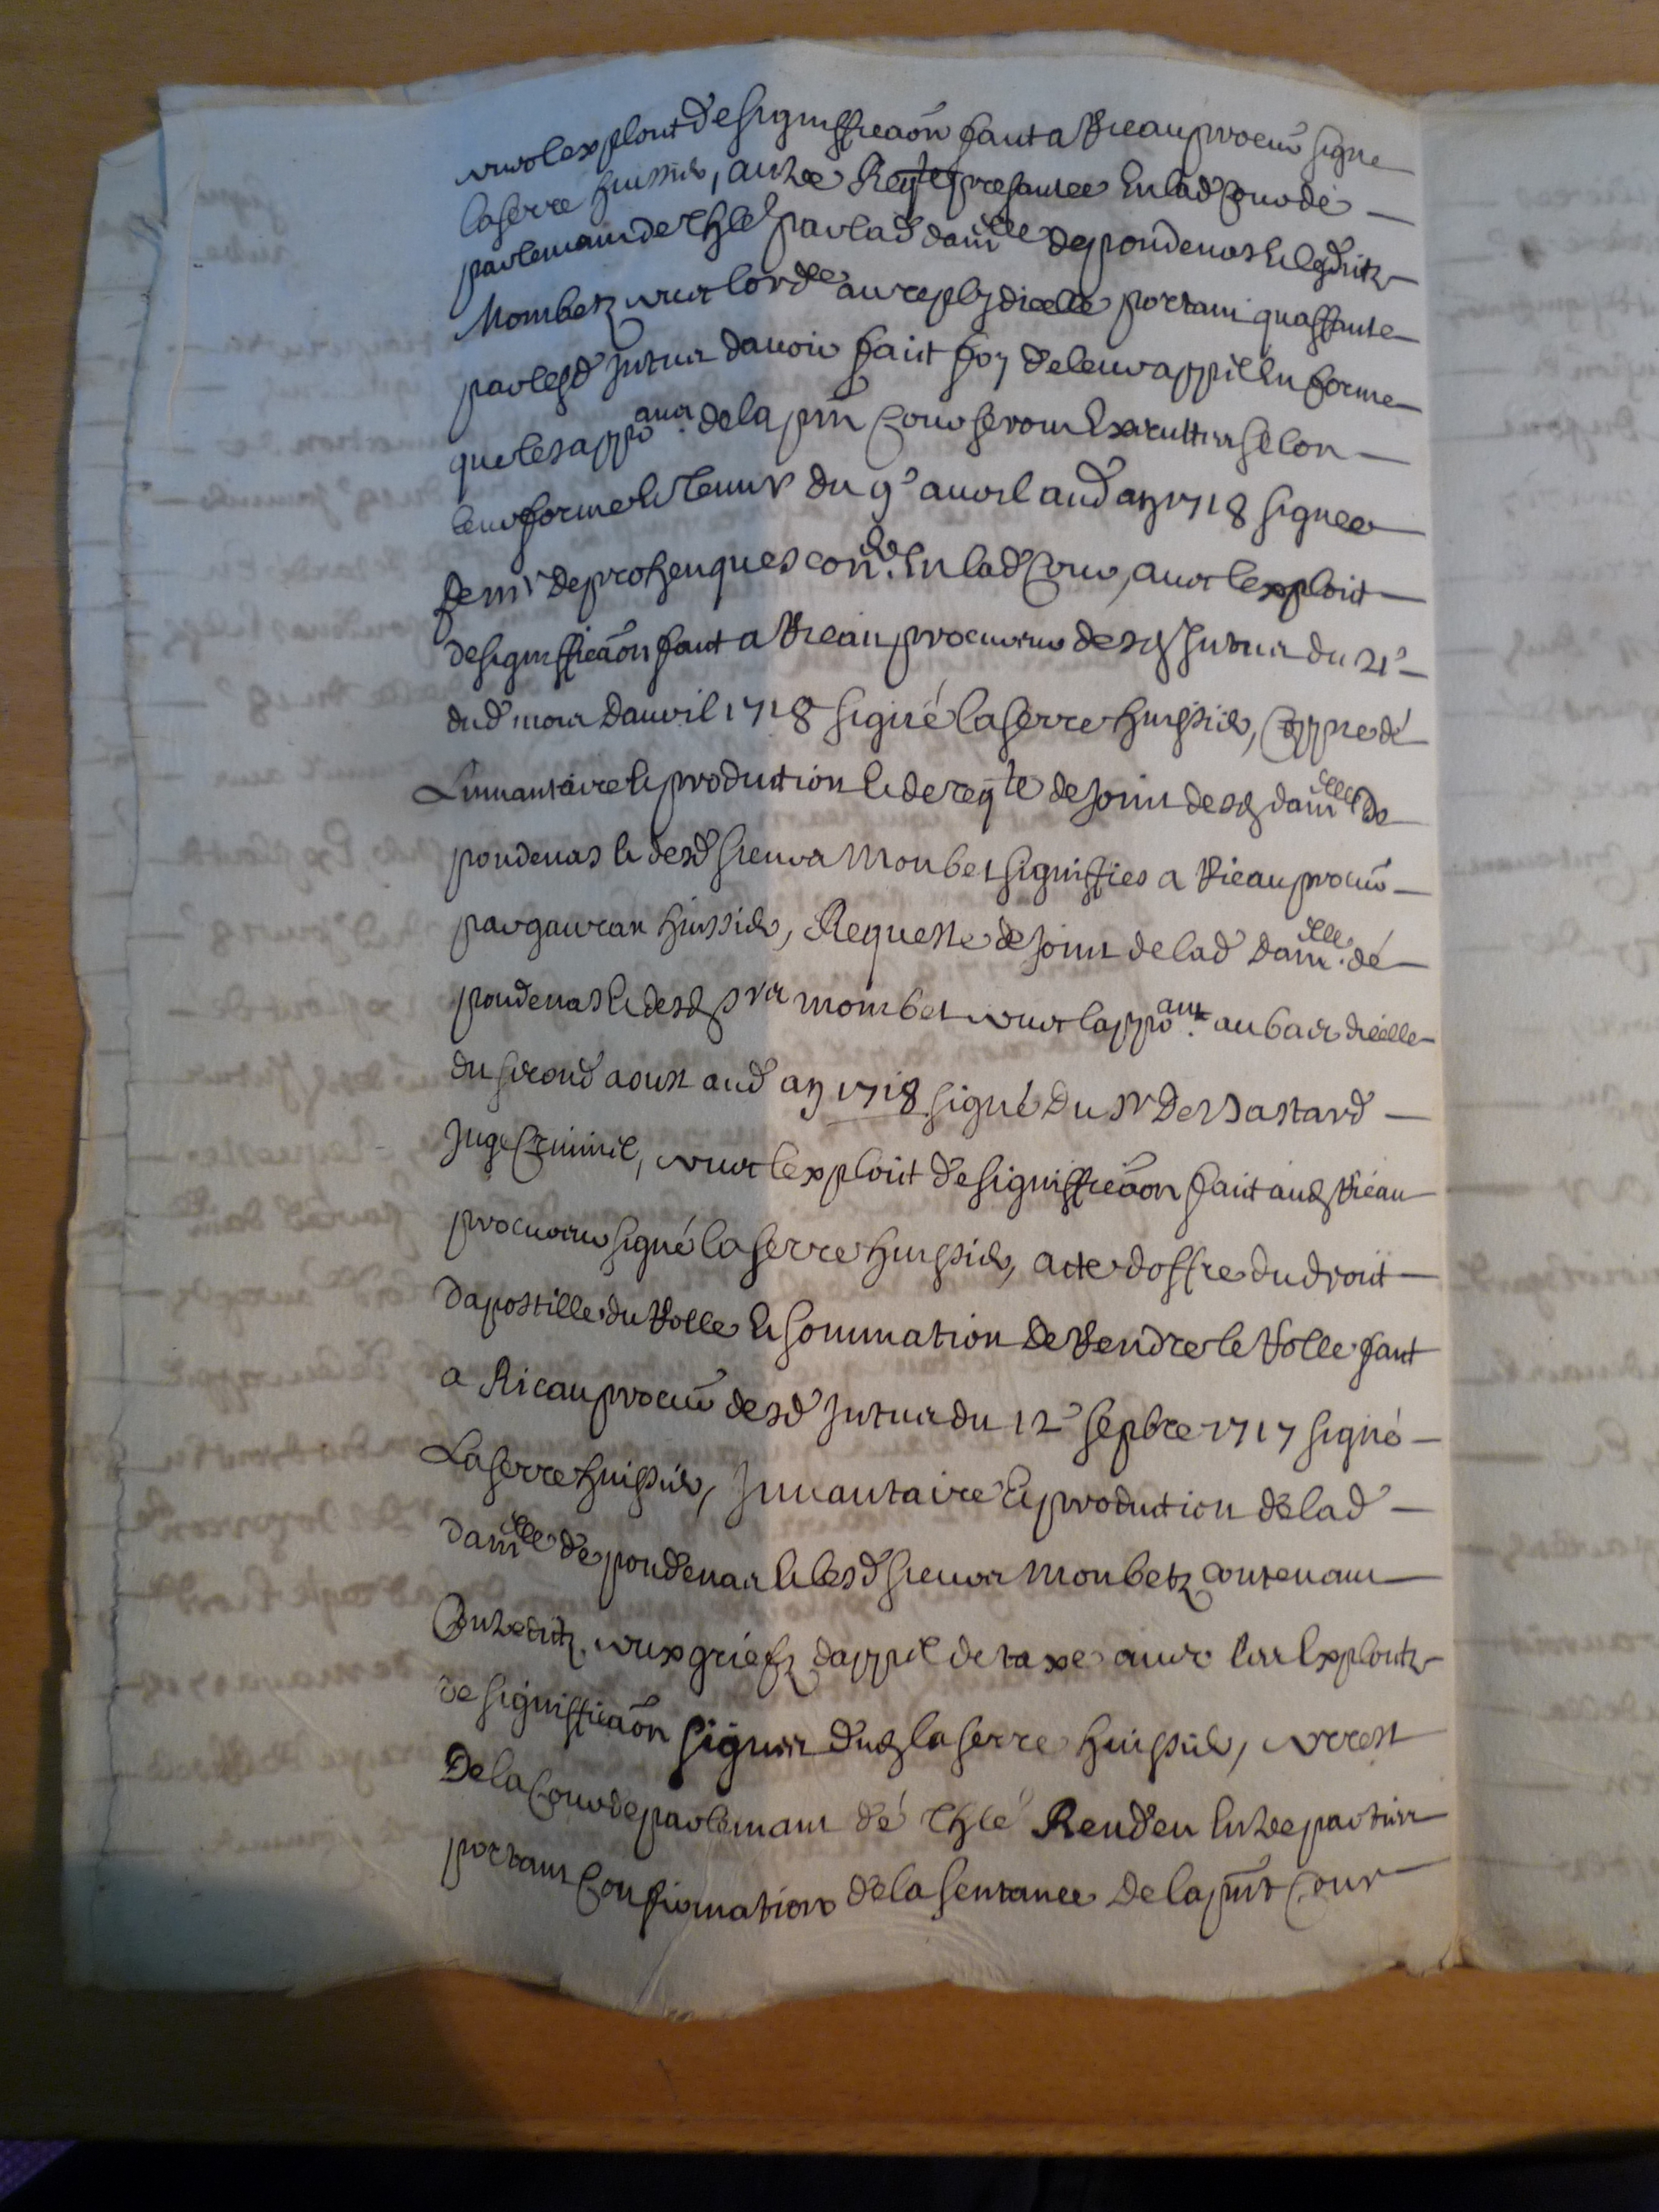 avec lexploit de signifficaõn fait a Ricau procur̃ signe
Laserre huissier, autre Reqte presantee en lad cour de
parlemant de Thle par lad damlle de pondenas et lesdits
Mombetz avec lordce au reply dicelle portant qua faute
par lesd Jutur davoir fait foy de leur appel en forme
que les appoans. de la pñt cour seront Executtes selon
leur forme et tenur du 9e avril aud an 1718 signee
de mr de prohenques conr. en lad cour, avec lexploit
de signifficaõn fait a Ricau procureur desd Jutur du 21e
dud mois davril 1718 signé Laserre huissier, Coppie de
Linvantaire et production et de reqte de soins desd damlles de
pondenas et desd sieurs Monbet signiffies a Ricau procur̃
par gauran huissier, Requeste de soins de lad damlle. de
pondenas et desd srs mombet avec lappoant. au bas dicelle
du second aoust aud an 1718 signé du sr De Bastard
Juge Criminel, avec lexploit de signifficaõn fait aud Ricau
procureur signé Laserre huissier, acte doffre du droit
dapostille du Rolle et sommation de Rendre le Rolle fait
a Ricau procur̃ desd Jutur du 12e sepbre 1717 signé
Laserre huissier, Jnvantaire et prodution de lad
damlle de pondenas et lesd sieurs Monbetz contenant
Contredits aux griefz dappel de taxe avec les Exploitz
de signifficaõn signes dud Laserre huissier, arrest
De la Cour de parlemant de Thle Renden entre parties
portant Confirmation de la sentance de la pñt Cour